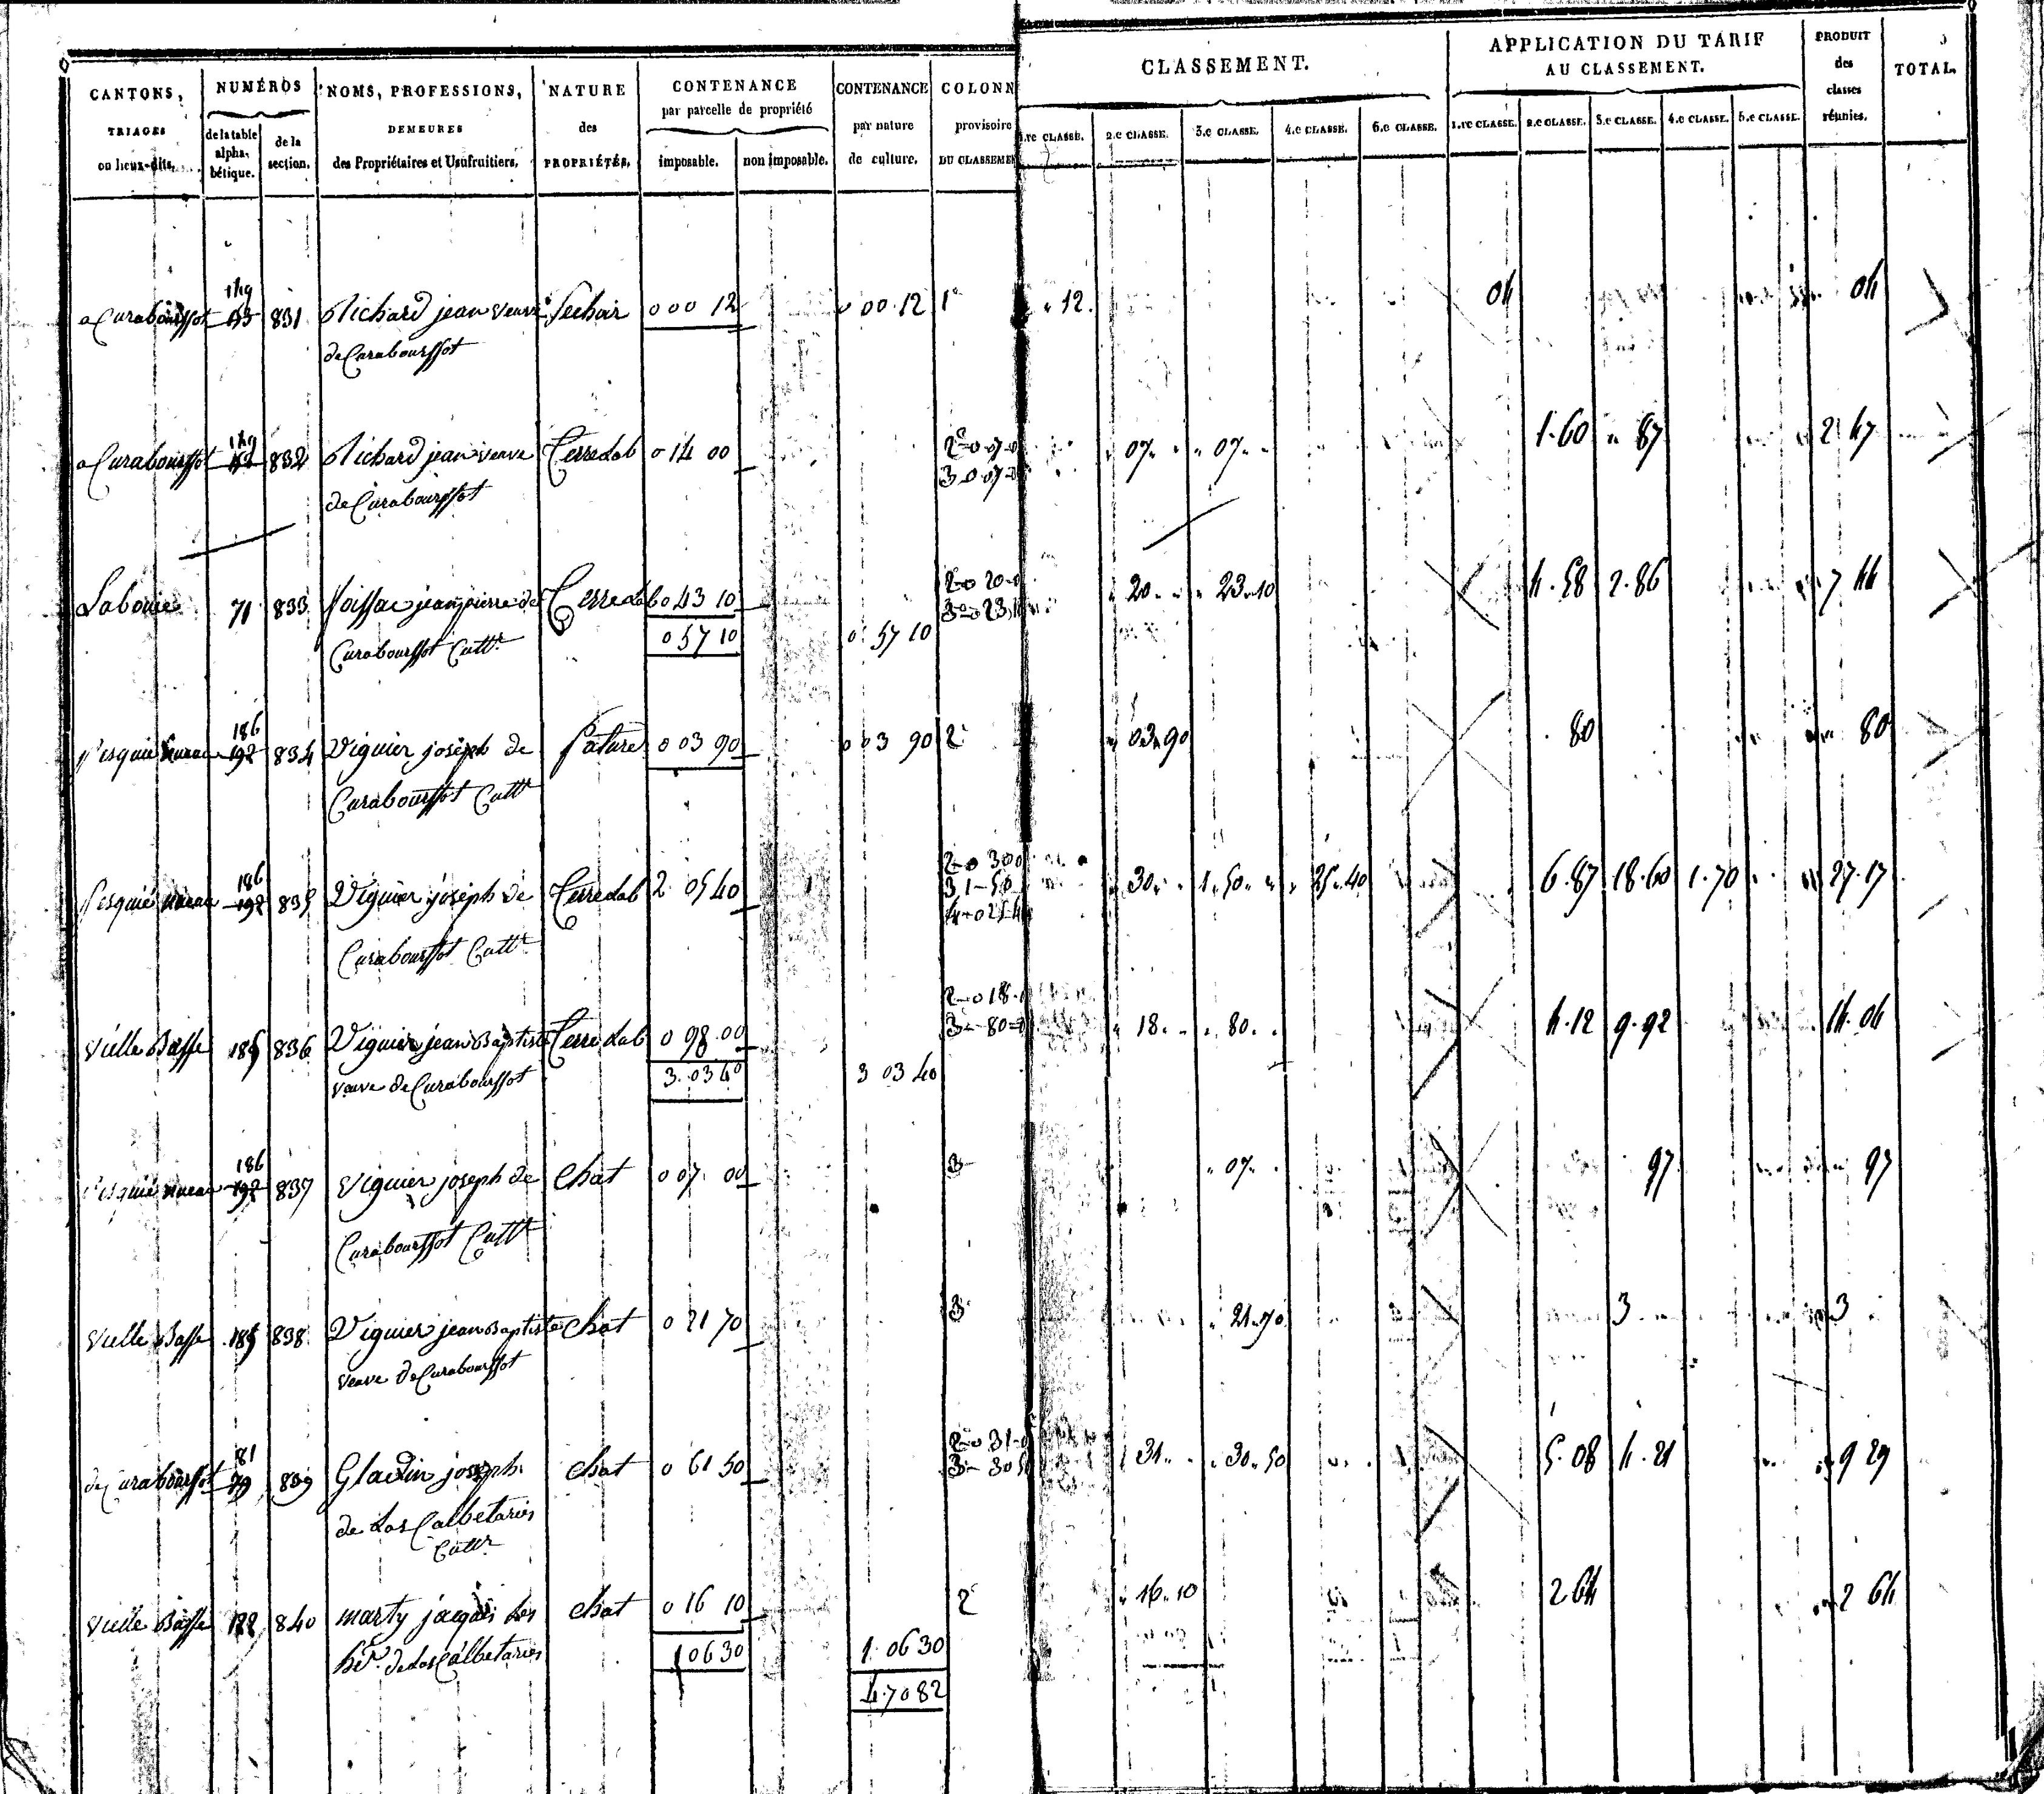 CANTONS, TRIAGES ou lieux-dits.
NUMÉROS
de la table alphabétique.
de la section.
NOMS, PROFESSIONS, DEMEURES des Propriétaires et Usufruitiers.
NATURE des PROPRIÉTÉS.
CONTENANCE par parcelle de propriété
imposable.
non imposable.
CONTENANCE par nature de culture.
COLONN provisoire DU CLASSEMEN
CLASSEMENT.
1.re CLASSE. 2.e CLASSE. 3.e CLASSE. 4.e CLASSE. 5.e CLASSE.
APPLICATION DU TARIF AU CLASSEMENT.
1.re CLASSE. 2.e CLASSE. 3.e CLASSE. 4.e CLASSE. 5.e CLASSE.
PRODUIT des classes réunies.
TOTAL.
149
a Curaboursot 831 Richard jean veuve Sechoir 0 00 12 0 00 12 1e 12 04 04
de Curaboursot
149
a Curaboursot 832 Richard jean veuve Terre lab 0 14 00 2e 0 07 0 07 07 1.60 87 2 47
de Curaboursot 3 0 07 0
Labouie 71 833 Foissac jean pierre de Terre lab 0 43 10 2 0 20 0 20 23 10 4.58 2.86 7 44
Curaboursot Cultr 0 57 10 0 57 10 3 0 23 1
186
192 834 Viguier joseph de Pature 0 03 90 0 03 90 2e 03 90 80 80
Curaboursot Cultr
186
192 835 Viguier joseph de Terre lab 2 05 40 2 0 30 0 30 1 50 25 40 6.87 18.60 1.70 27.17
Curaboursot Cultr 3 1 50
4 0 25 4
Vielle Basse 185 836 Viguier jean Baptiste Terre lab 0 98 00 2 0 18 18 80 4.12 9.92 14.04
veuve de Curaboursot 3 03 40 3 03 40 3 80 0
186
192 837 Viguier joseph de Chat 0 07 00 3 07 97 97
Curaboursot Cultr
Vielle Basse 185 838 Viguier jean Baptiste Chat 0 21 70 3 21 70 3 3
veuve de Curaboursot
81
de Curaboursot 79 839 Gladin joseph Chat 0 61 50 2 0 31 0 31 30 50 5.08 4.21 9 29
de Las Calbetaries 3 30 5
Cultr
Vielle Basse 122 840 marty jacques les Chat 0 16 10 2e 16 10 2 64 2 64
hér. de Las Calbetaries 1 06 30 1 06 30
4.70 82